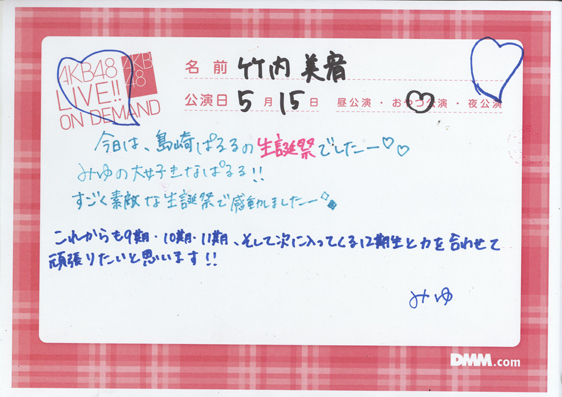 AKB48
LIVE!!
ON DEMAND
AKB
48
名前 竹内 美宥
公演日 5月15日 昼公演・おやつ公演・夜公演
今日は、島崎ぱるるの生誕祭でしたー♡♡
みゆの大好きなぱるる!!
すごく素敵な生誕祭で感動しましたー
これからも9期・10期・11期、そして次に入ってくる12期生と力を合わせて
頑張りたいと思います!!
みゆ
DMM.com